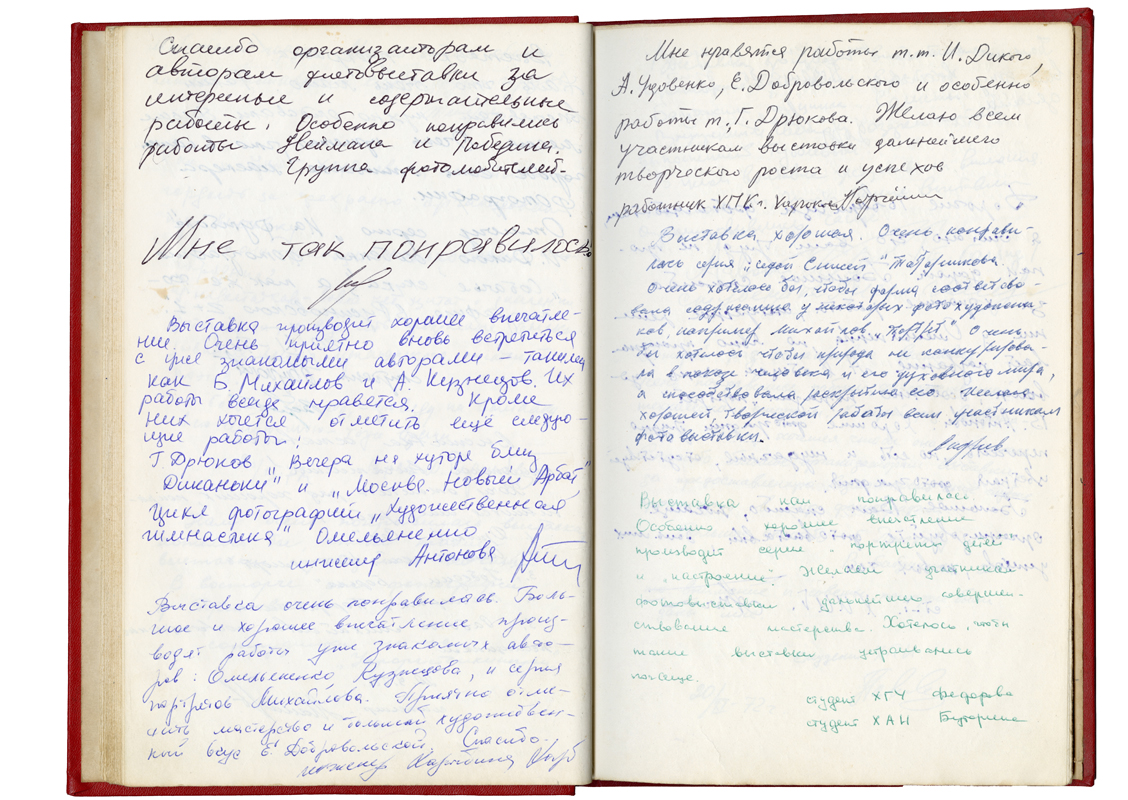 Спасибо организаторам и
авторам фотовыставки за
интересные и содержательные
работы. Особенно понравились
работы Неймана и Победина.
Группа фотолюбителей.
Мне так понравилось.
Выставка производит хорошее впечатле-
ние. Очень приятно вновь встретиться
с уже знакомыми авторами – такими
как Б. Михайлов и А. Кузнецов. Их
работы всегда нравятся. Кроме
них хочется отметить ещё следую-
щие работы:
Г. Дрюков „Вечера на хуторе близ
Диканьки" и „Москва. Новый Арбат",
цикл фотографий „Художественная
гимнастика" Омельяненко
инженер Антонова
Выставка очень понравилась. Боль-
шое и хорошее впечатление произ-
водят работы уже знакомых авто-
ров: Омельяненко Кузнецова, и серия
портретов Михайлова. Приятно отме-
тить мастерство и тонкий художествен-
ный вкус Е. Добровольской. Спасибо.
инженер
Мне нравятся работы т.т. И. Дикого,
А. Удовенко, Е. Добровольского и особенно
работы т. Г. Дрюкова. Желаю всем
участникам выставки дальнейшего
творческого роста и успехов
работник ХПК г. Харьков
Выставка хорошая. Очень понрави-
лась серия „Седой Енисей"
Очень хотелось бы, чтобы форма соответство-
вала содержанию у некоторых фотохудожни-
ков, например Михайлов „Портрет". Очень
бы хотелось чтобы природа не конкурирова-
ла в показе человека и его духовного мира,
а способствовала раскрытию его. Желаю
хорошей, творческой работы всем участникам
фотовыставки.
Выставка нам понравилась.
Особенно хорошее впечатление
производит серия портреты детей
и "настроение". Желаем участникам
фотовыставки дальнейшего совершен-
ствования мастерства. Хотелось, чтобы
такие выставки устраивались
почаще.
студент ХГУ Федорова
студент ХАИ